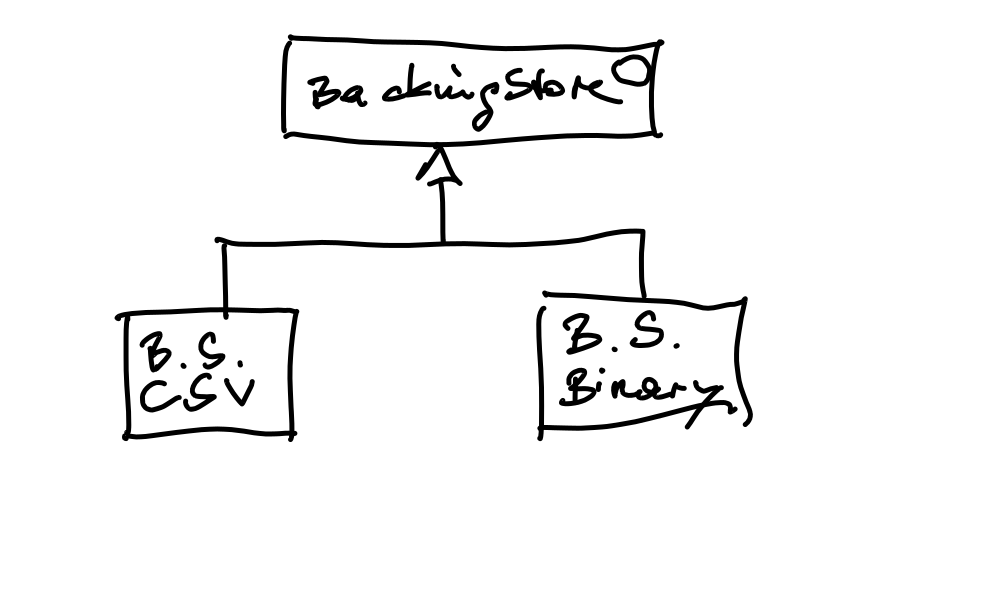 BackingStore
B.S.
CSV
B.S.
Binary